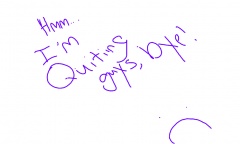 Hmm...
I'm
Quiting
guys, bye!